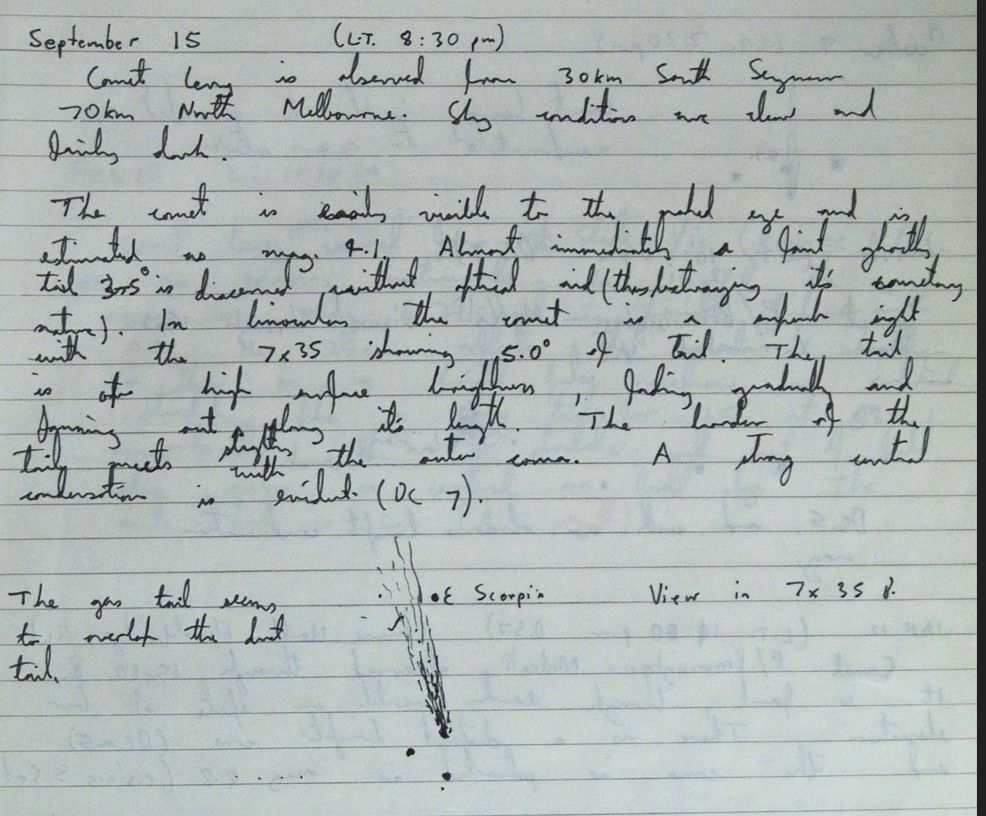 September 15 (L.T. 8:30 pm)
Comet Levy is observed from 30km South Seymour
70km North Melbourne. Sky conditions are clear and
fairly dark.
The comet is easily visible to the naked eye and is
estimated as mag. 4.1. Almost immediately a faint ghostly
tail 3.5° is discerned without optical aid (thus betraying it's cometary
nature). In binoculars the comet is a superb sight
with the 7x35 showing 5.0° of tail. The tail
is of high surface brightness, fading gradually and
fanning out along it's length. The border of the
tail meets with the outer coma. A strong central
condensation is evident. (DC 7).
The gas tail seems
to overlap the dust
tail.
ε Scorpii View in 7x35 B.